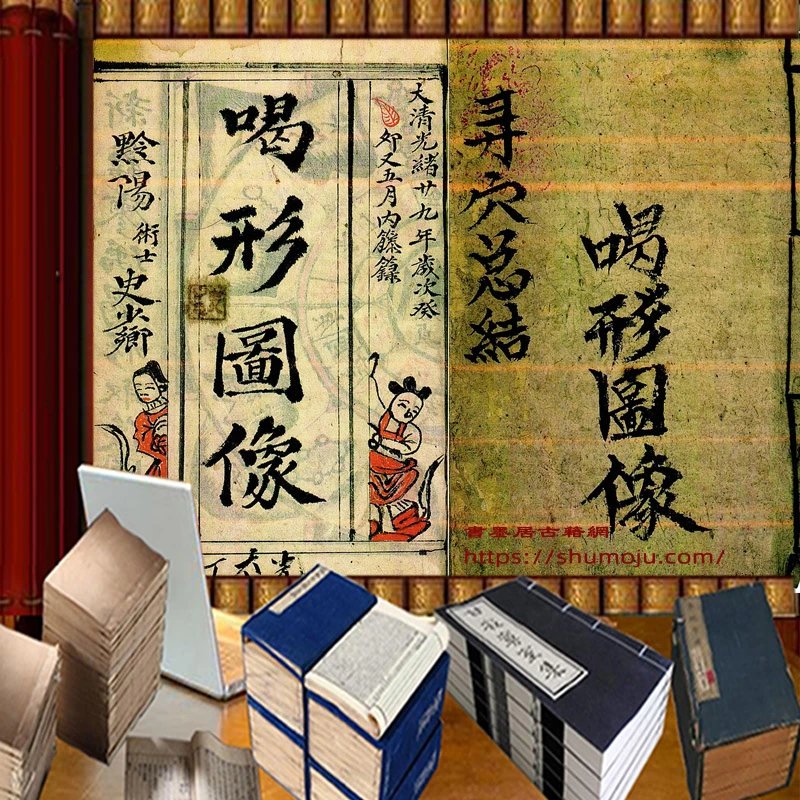 喝形圖像
寻穴总結
大清光緒廿九年歲次癸
卯又五月內籐籙
喝形圖像
黔陽 術士 史少鄉
書墨居古籍網
https://shumoju.com/